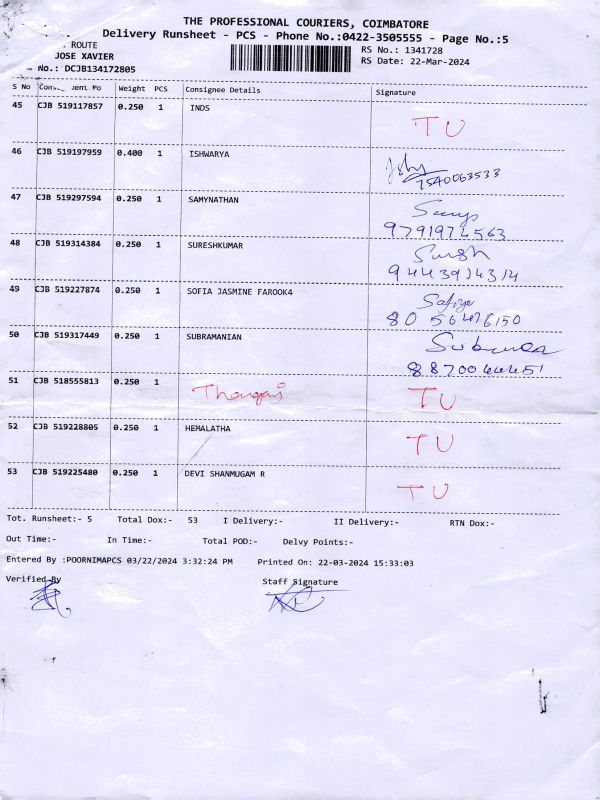 THE PROFESSIONAL COURIERS, COIMBATORE
Delivery Runsheet - PCS - Phone No.:0422-3505555 - Page No.:5
ROUTE
JOSE XAVIER
No.: DCJB134172805
RS No.: 1341728
RS Date: 22-Mar-2024
S No Weight PCS Consignee Details Signature
45 CJB 519117857 0.250 1 INDS TU
46 CJB 519197959 0.400 1 ISHWARYA
7540063533
47 CJB 519297594 0.250 1 SAMYNATHAN
9791974563
48 CJB 519314384 0.250 1 SURESHKUMAR
49 CJB 519227874 0.250 1 SOFIA JASMINE FAROOK4
50 CJB 519317449 0.250 1 SUBRAMANIAN
51 CJB 518555813 0.250 1 TU
52 CJB 519228805 0.250 1 HEMALATHA TU
53 CJB 519225480 0.250 1 DEVI SHANMUGAM R TU
Tot. Runsheet:- 5 Total Dox:- 53 I Delivery:- II Delivery:- RTN Dox:-
Out Time:- In Time:- Total POD:- Delvy Points:-
Entered By :POORNIMAPCS 03/22/2024 3:32:24 PM Printed On: 22-03-2024 15:33:03
Verified By Staff Signature